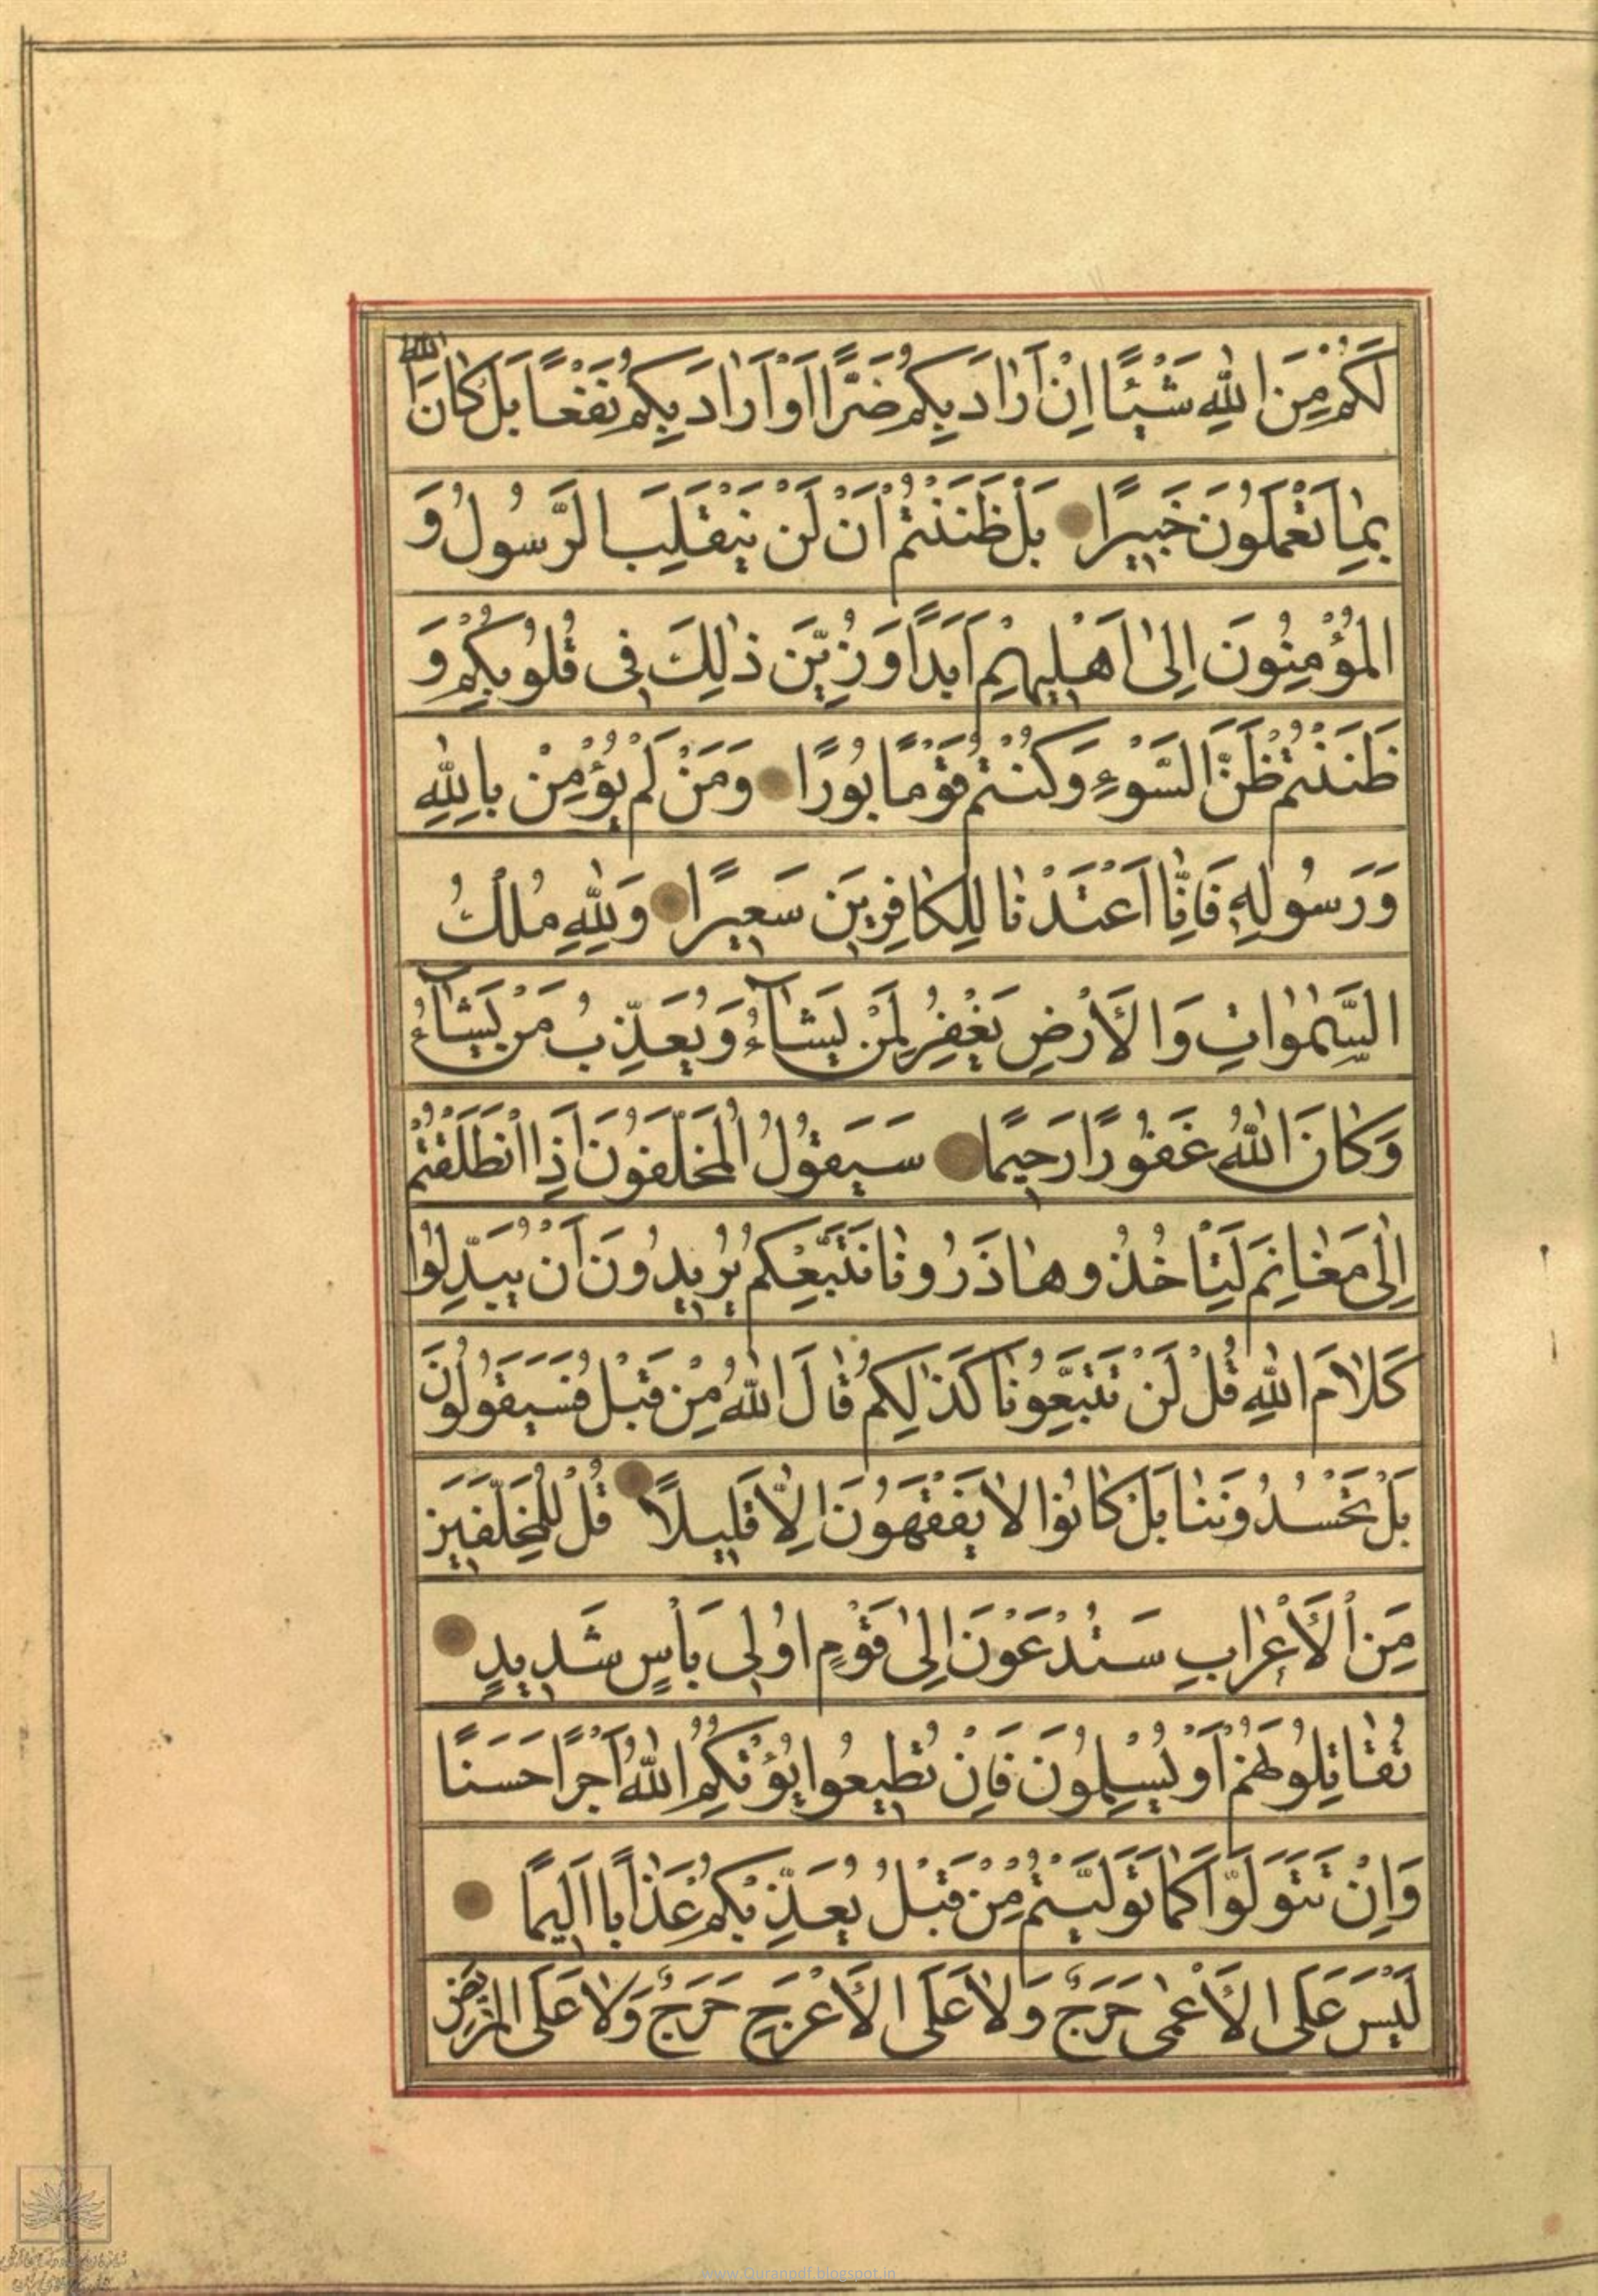 لَكُمْ مِنَ اللهِ شَيْئًا اِنْ اَرَادَ بِكُمْ ضَرًّا اَوْ اَرَادَ بِكُمْ نَفْعًا بَلْ كَانَ اللهُ
بِمَا تَعْمَلُونَ خَبِيرًا بَلْ ظَنَنْتُمْ اَنْ لَنْ يَنْقَلِبَ الرَّسُولُ وَ
الْمُؤْمِنُونَ اِلٰى اَهْلِيهِمْ اَبَدًا وَزُيِّنَ ذٰلِكَ فِى قُلُوبِكُمْ وَ
ظَنَنْتُمْ ظَنَّ السَّوْءِ وَكُنْتُمْ قَوْمًا بُورًا وَمَنْ لَمْ يُؤْمِنْ بِاللهِ
وَرَسُولِهِ فَاِنَّا اَعْتَدْنَا لِلْكَافِرِينَ سَعِيرًا وَلِلّٰهِ مُلْكُ
السَّمٰوَاتِ وَالْاَرْضِ يَغْفِرُ لِمَنْ يَشَآءُ وَيُعَذِّبُ مَنْ يَشَآءُ
وَكَانَ اللهُ غَفُورًا رَحِيمًا سَيَقُولُ الْمُخَلَّفُونَ اِذَا انْطَلَقْتُمْ
اِلٰى مَغَانِمَ لِتَأْخُذُوهَا ذَرُونَا نَتَّبِعْكُمْ يُرِيدُونَ اَنْ يُبَدِّلُوا
كَلَامَ اللهِ قُلْ لَنْ تَتَّبِعُونَا كَذٰلِكُمْ قَالَ اللهُ مِنْ قَبْلُ فَسَيَقُولُونَ
بَلْ تَحْسُدُونَنَا بَلْ كَانُوا لَا يَفْقَهُونَ اِلَّا قَلِيلًا قُلْ لِلْمُخَلَّفِينَ
مِنَ الْأَعْرَابِ سَتُدْعَوْنَ اِلٰى قَوْمٍ اُولِى بَأْسٍ شَدِيدٍ
تُقَاتِلُونَهُمْ اَوْ يُسْلِمُونَ فَاِنْ تُطِيعُوا يُؤْتِكُمُ اللهُ اَجْرًا حَسَنًا
وَاِنْ تَتَوَلَّوْا كَمَا تَوَلَّيْتُمْ مِنْ قَبْلُ يُعَذِّبْكُمْ عَذَابًا اَلِيمًا
لَيْسَ عَلَى الْأَعْمٰى حَرَجٌ وَلَا عَلَى الْأَعْرَجِ حَرَجٌ وَلَا عَلَى الْمَرِيضِ
www.Quranpdf.blogspot.in